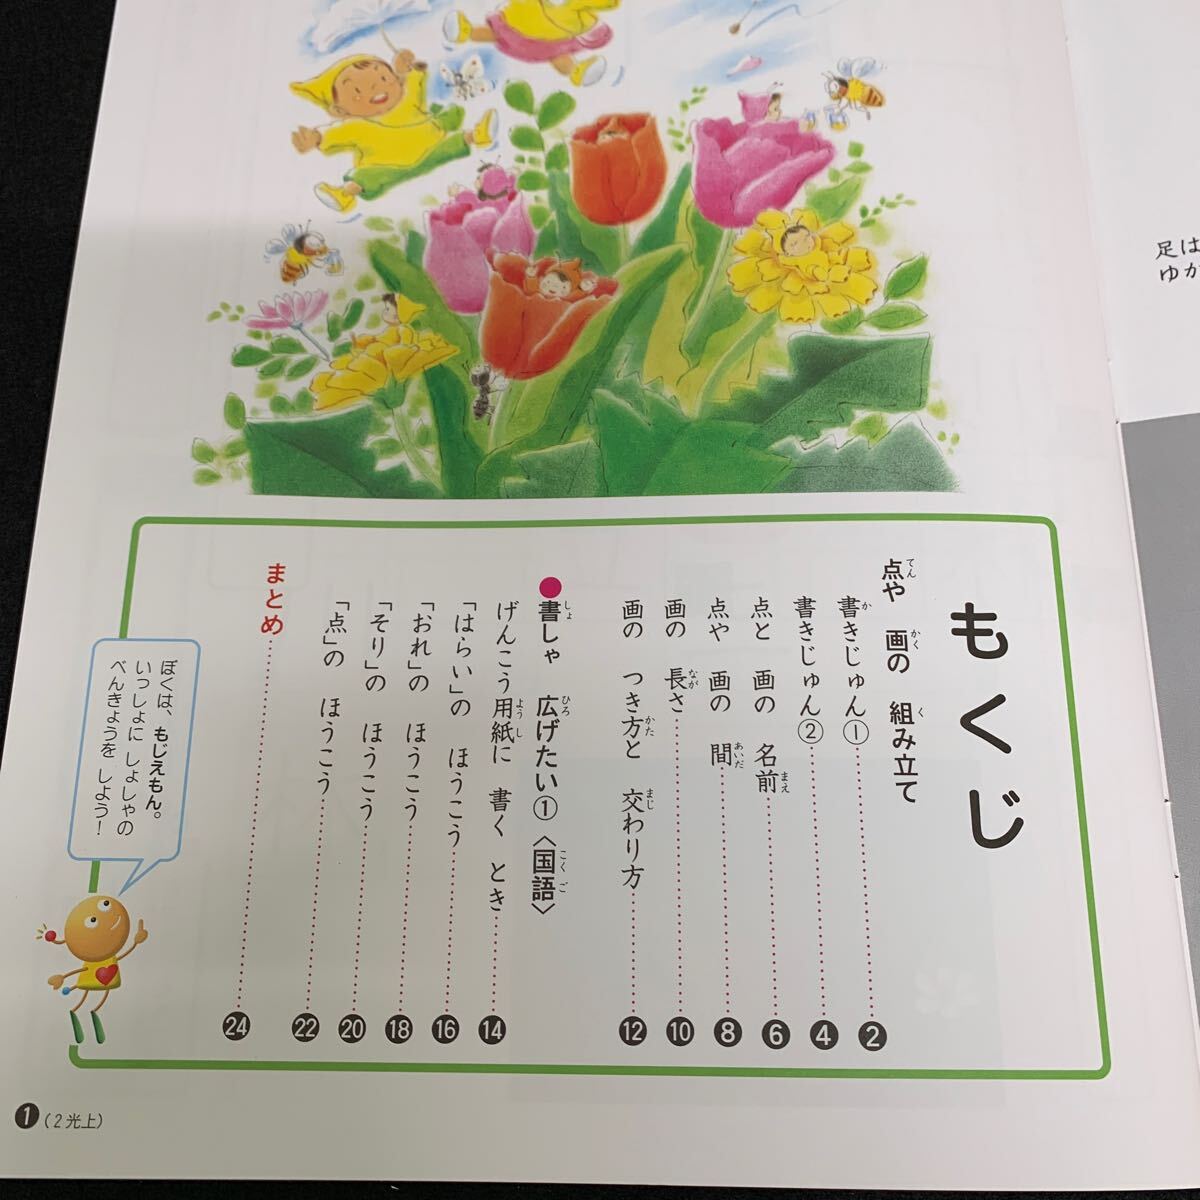 もくじ
点や 画の 組み立て
書きじゅん① 2
書きじゅん② 4
点と 画の 名前 6
点や 画の 間 8
画の 長さ 10
画の つき方と 交わり方 12
●書しゃ 広げたい①〈国語〉
げんこう用紙に 書く とき 14
「はらい」の ほうこう 16
「おれ」の ほうこう 18
「そり」の ほうこう 20
「点」の ほうこう 22
まとめ 24
ぼくは、もじえもん。
いっしょに しょしゃの
べんきょうを しよう!
1 (2光上)
足は
ゆか